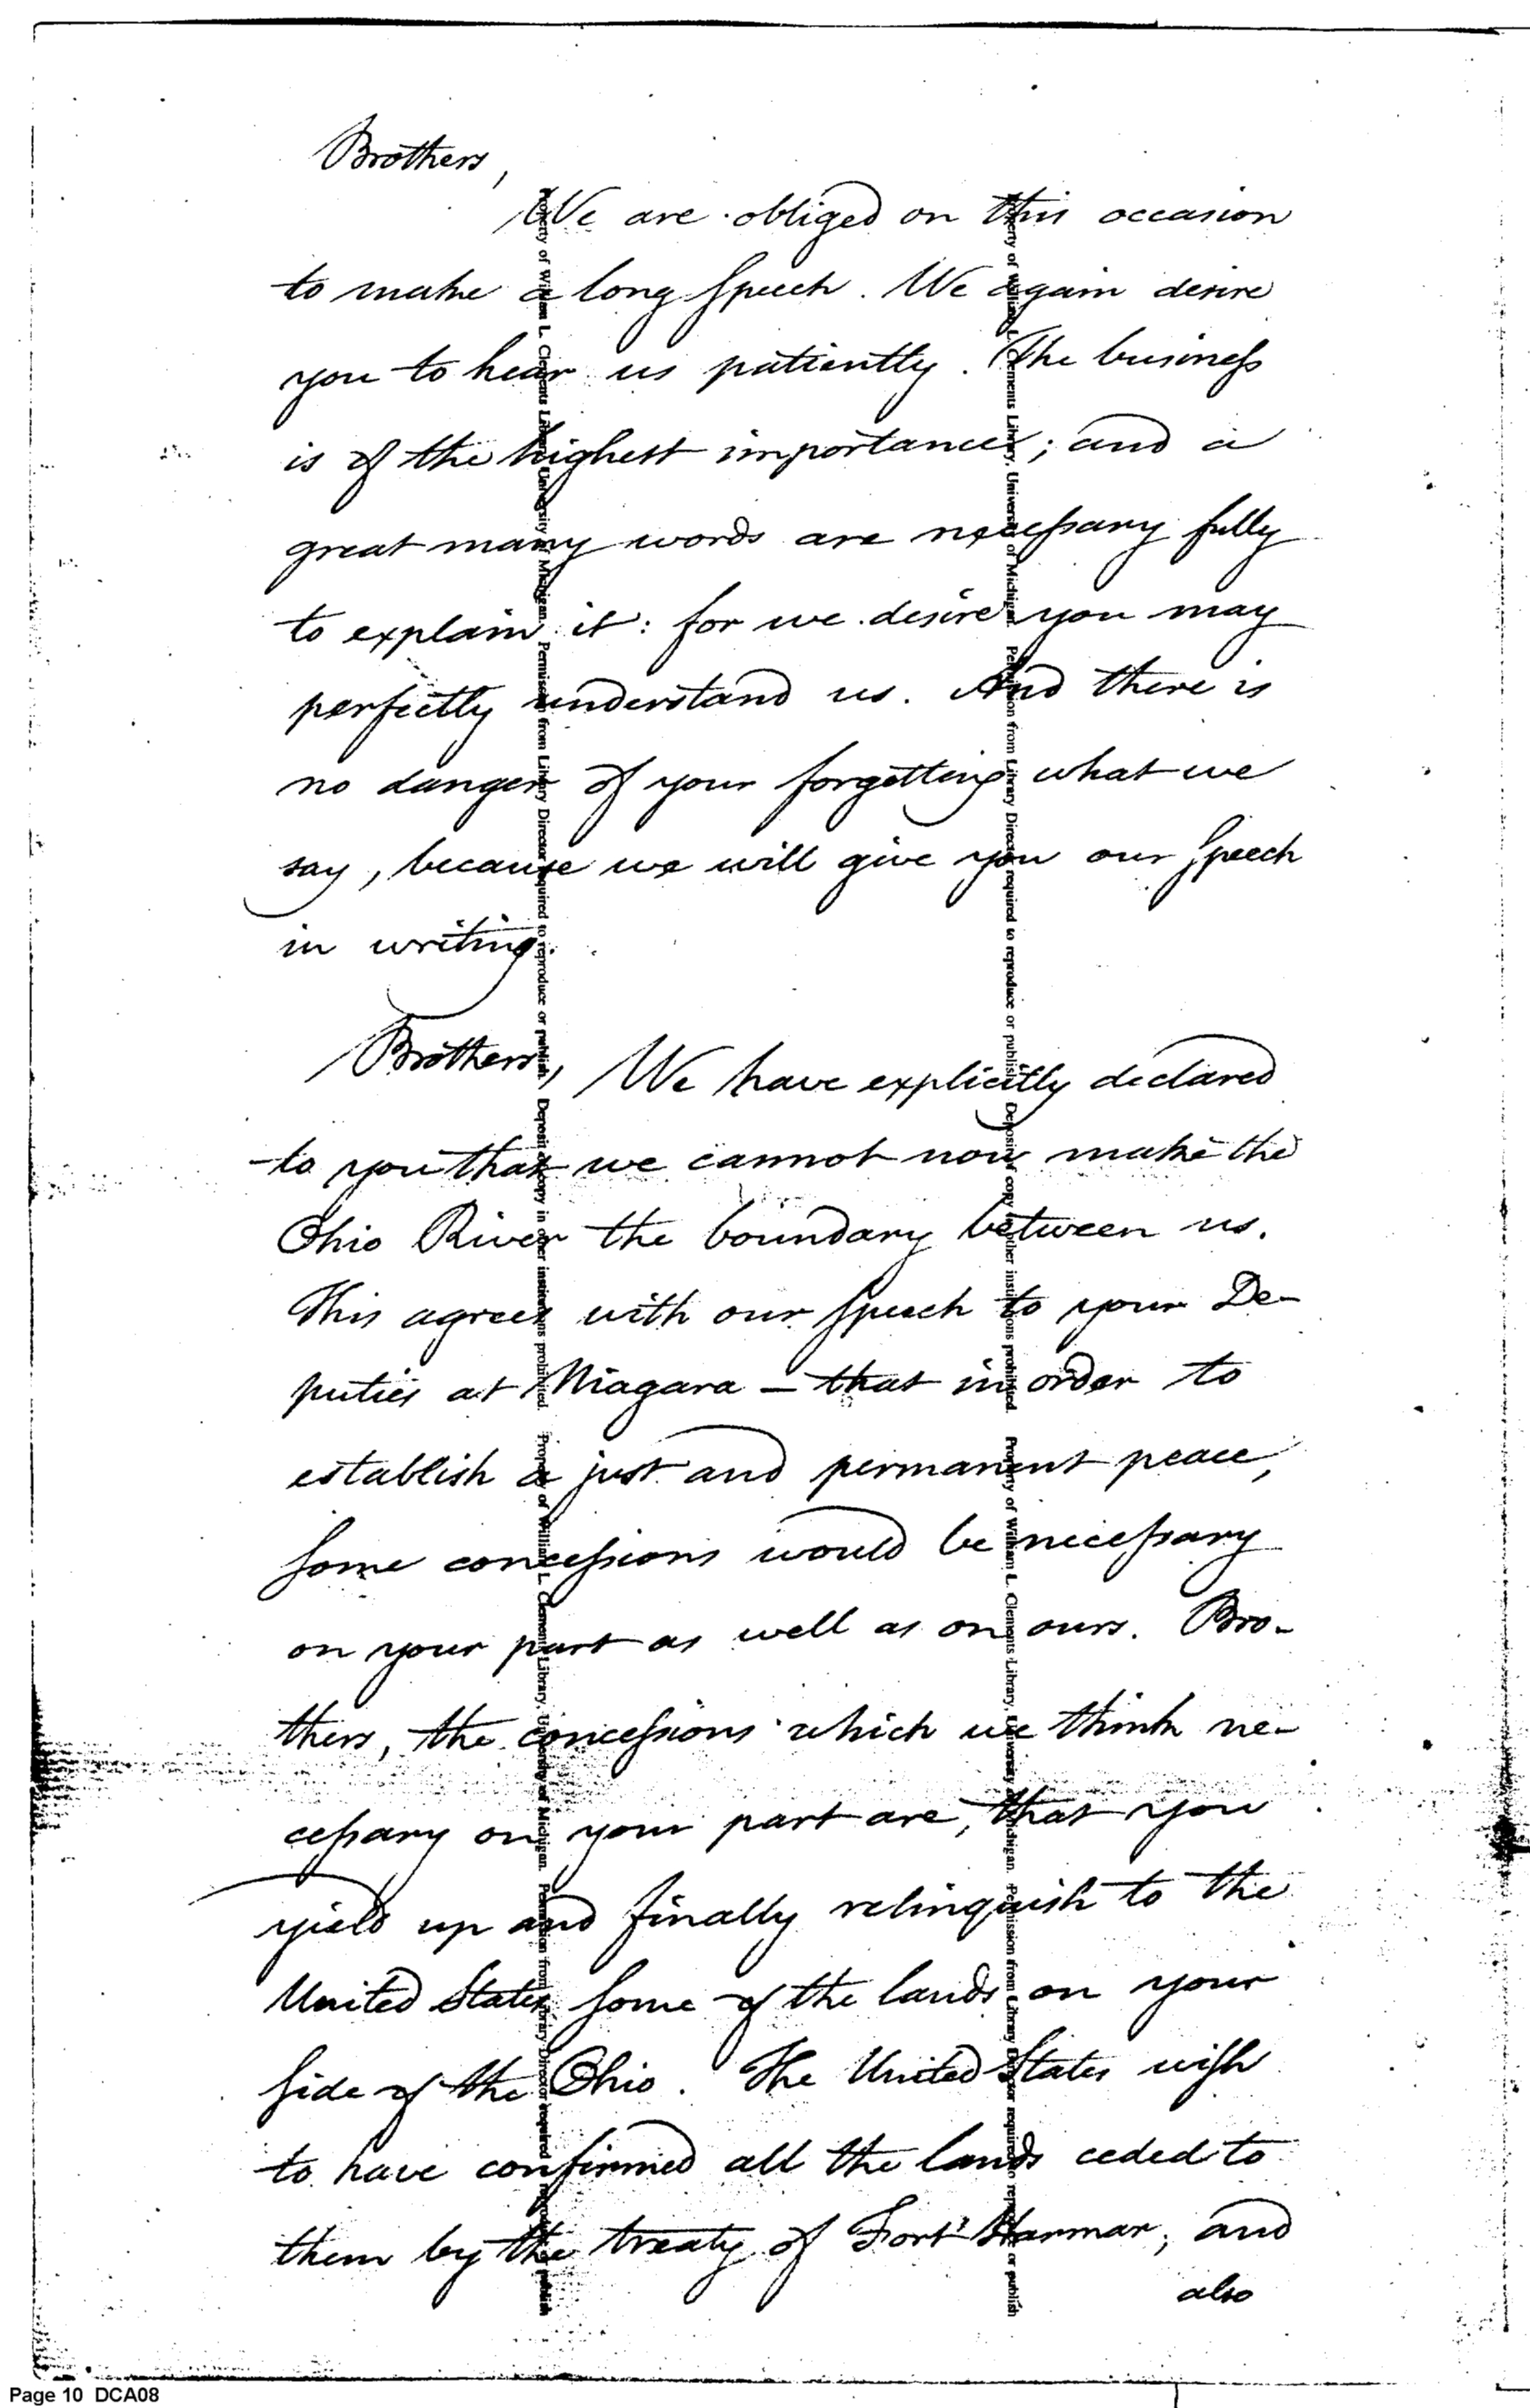 Brothers,
We are obliged on this occasion
to make a long speech. We again desire
you to hear us patiently. The business
is of the highest importance; and a
great many words are necessary fully
to explain it: for we desire you may
perfectly understand us. And there is
no danger of your forgetting what we
say, because we will give you our speech
in writing.
Brothers, We have explicitly declared
to you that we cannot now make the
Ohio River the boundary between us.
This agrees with our speech to your De-
puties at Niagara – that in order to
establish a just and permanent peace,
some concessions would be necessary
on your part as well as on ours. Bro-
thers, the concessions which we think ne-
cessary on your part are, that you
yield up and finally relinquish to the
United States some of the lands on your
side of the Ohio. The United States wish
to have confirmed all the lands ceded to
them by the treaty of Fort Harmar; and
also
Property of William L. Clements Library, University of Michigan. Permission from Library Director required to reproduce or publish. Deposit of copy in other institutions prohibited. Property of William L. Clements Library, University of Michigan. Permission from Library Director required to reproduce or publish
Property of William L. Clements Library, University of Michigan. Permission from Library Director required to reproduce or publish. Deposit of copy in other institutions prohibited. Property of William L. Clements Library, University of Michigan. Permission from Library Director required to reproduce or publish
Page 10 DCA08